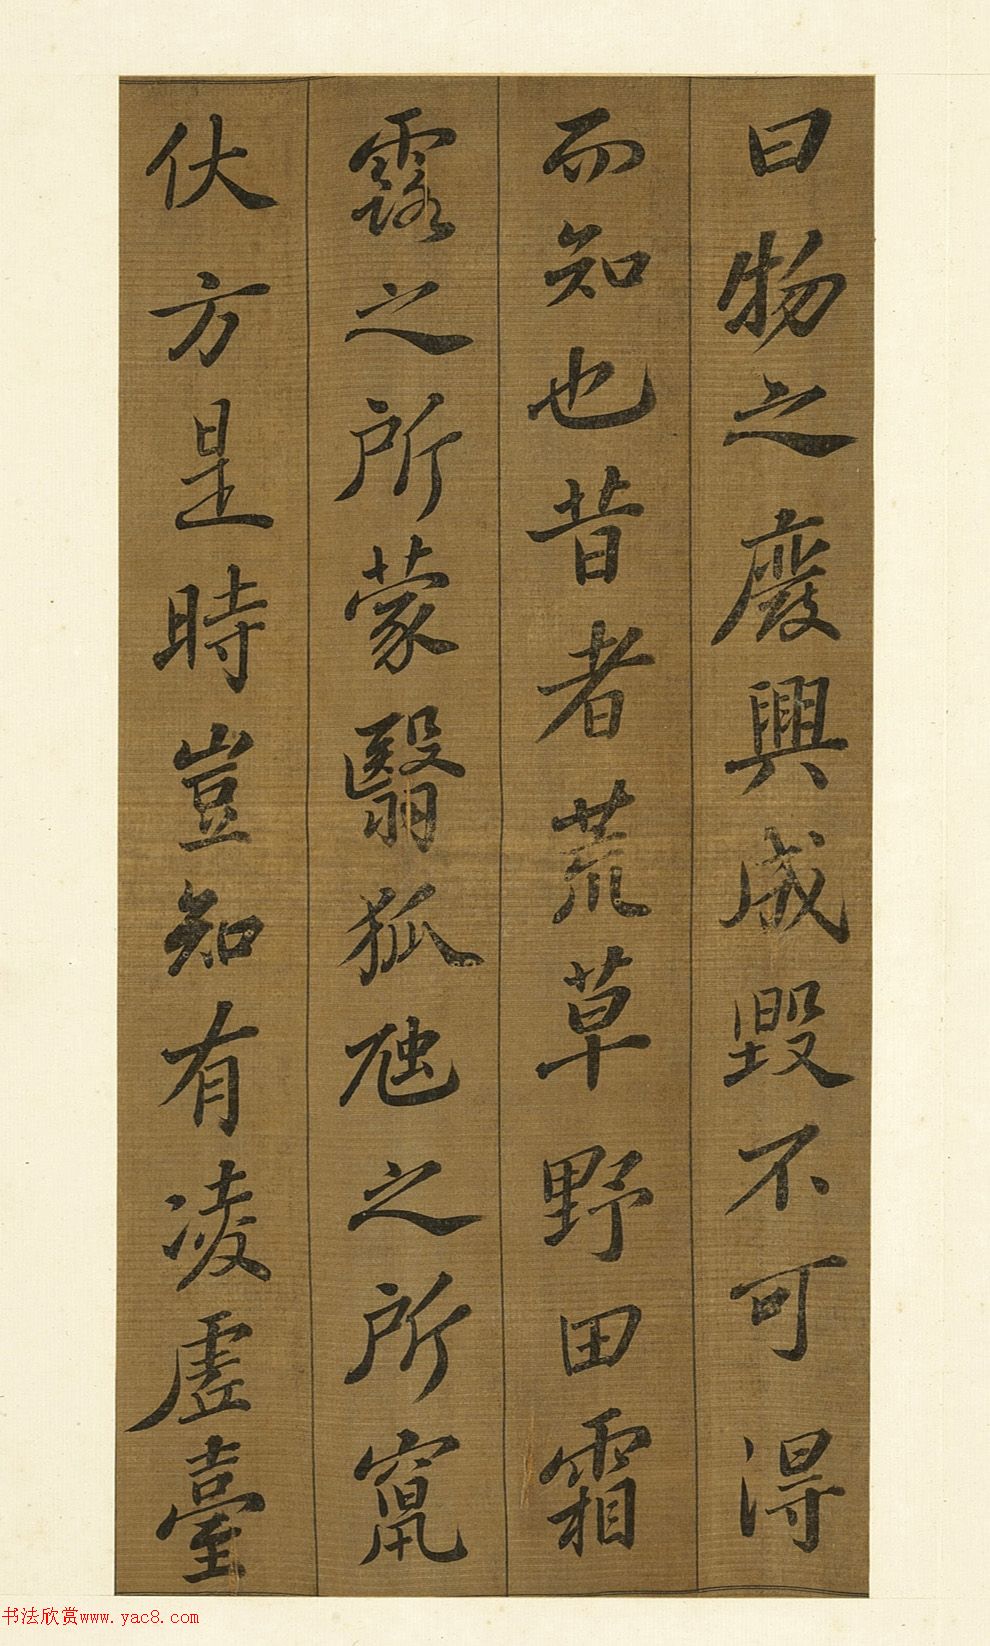 曰物之廢興成毀不可得
而知也昔者荒草野田霜
露之所蒙翳狐虺之所竄
伏方是時豈知有凌虛臺
书法欣赏www.yac8.com